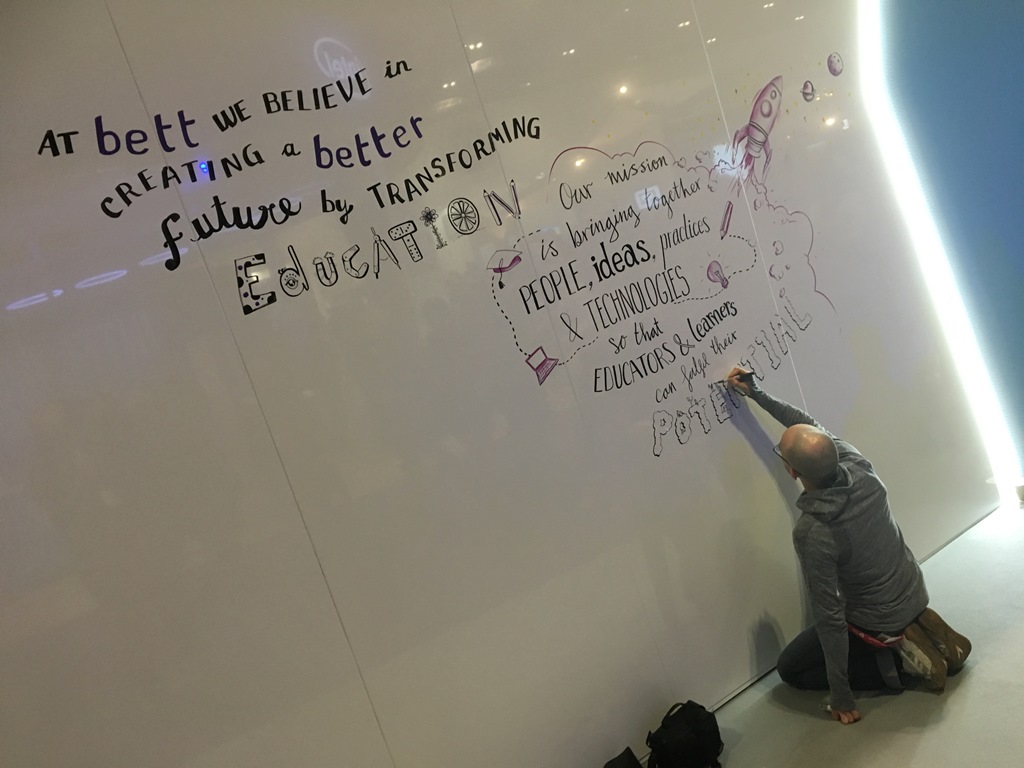 AT bett WE BELIEVE in
CREATING a better
future by TRANSFORMING
EDUCATION
Our mission
is bringing together
PEOPLE, ideas, practices
& TECHNOLOGIES
so that
EDUCATORS & learners
can fulfil their
POTENTIAL